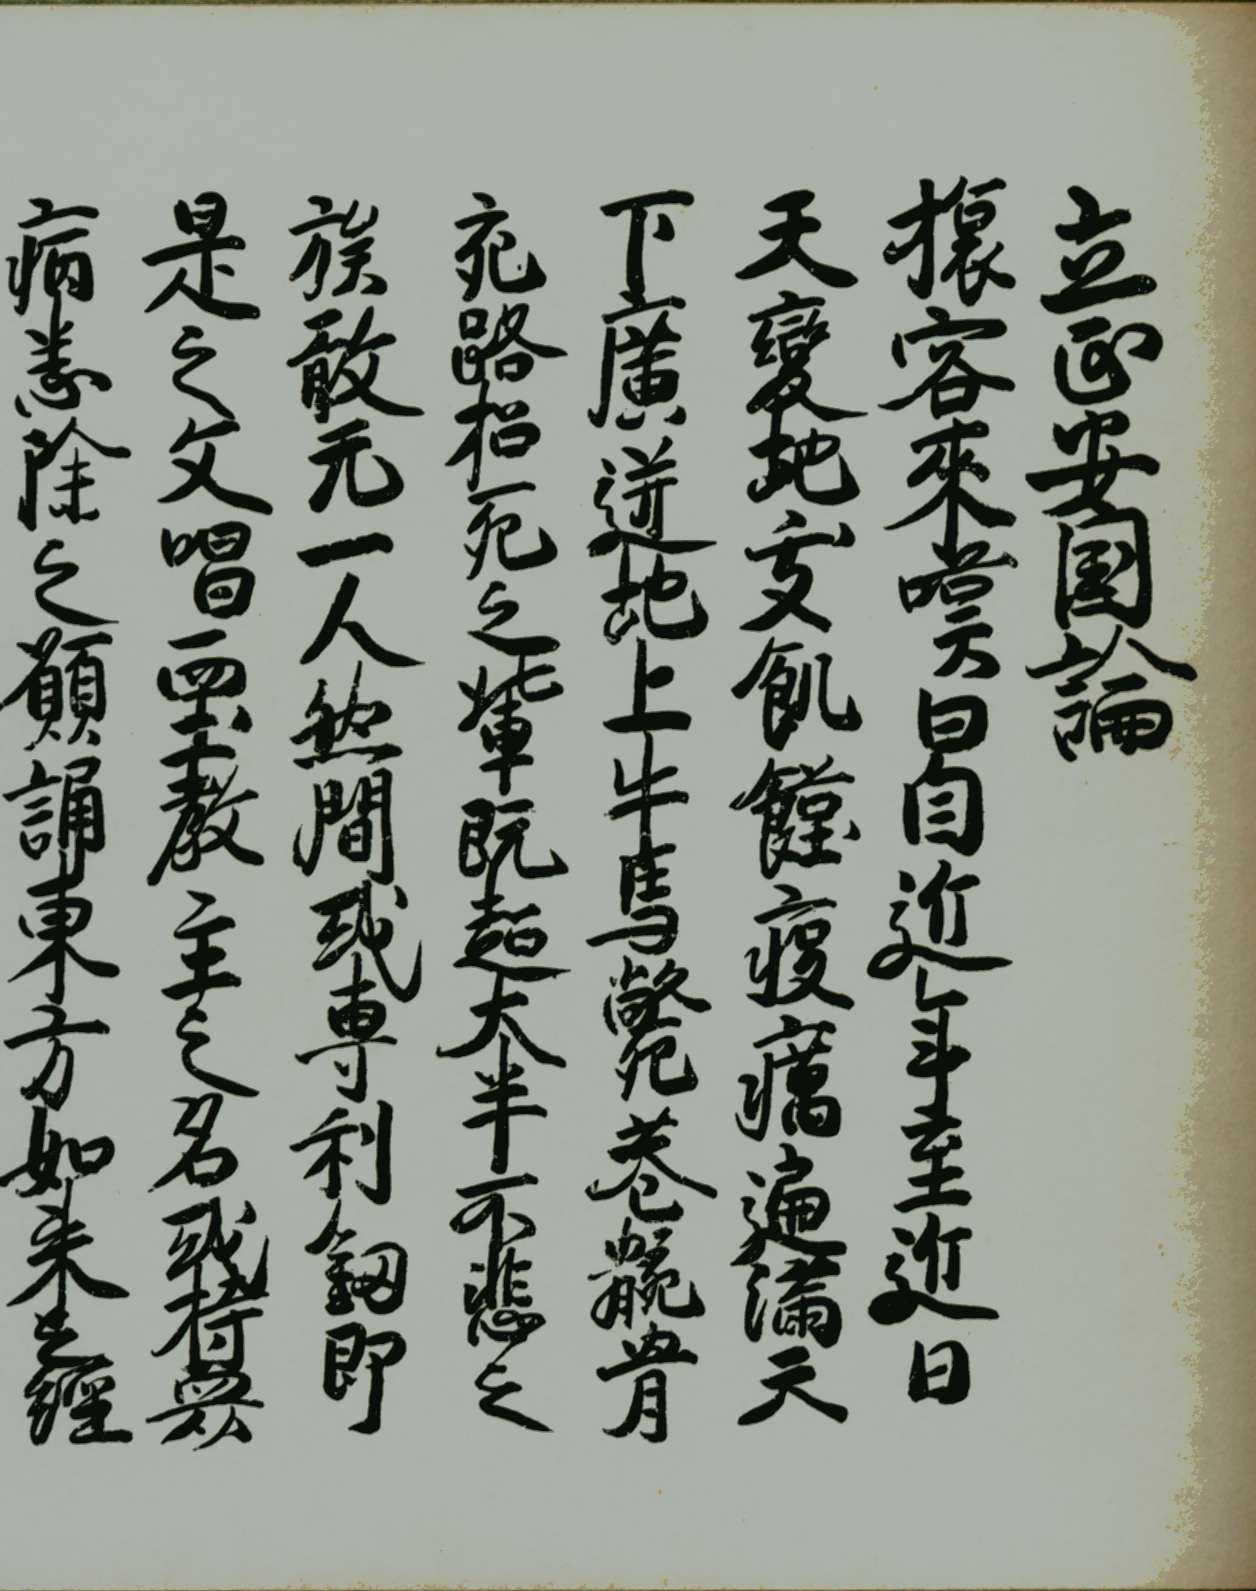 立正安国論
旅客來嘆曰自近年至近日
天變地夭飢饉疫癘遍滿天
下廣迸地上牛馬斃巷骸骨
充路招死之輩既超大半不悲之
族敢无一人然間或專利釼即
是之文唱西土教主之名或恃衆
病悉除之願誦東方如来之經